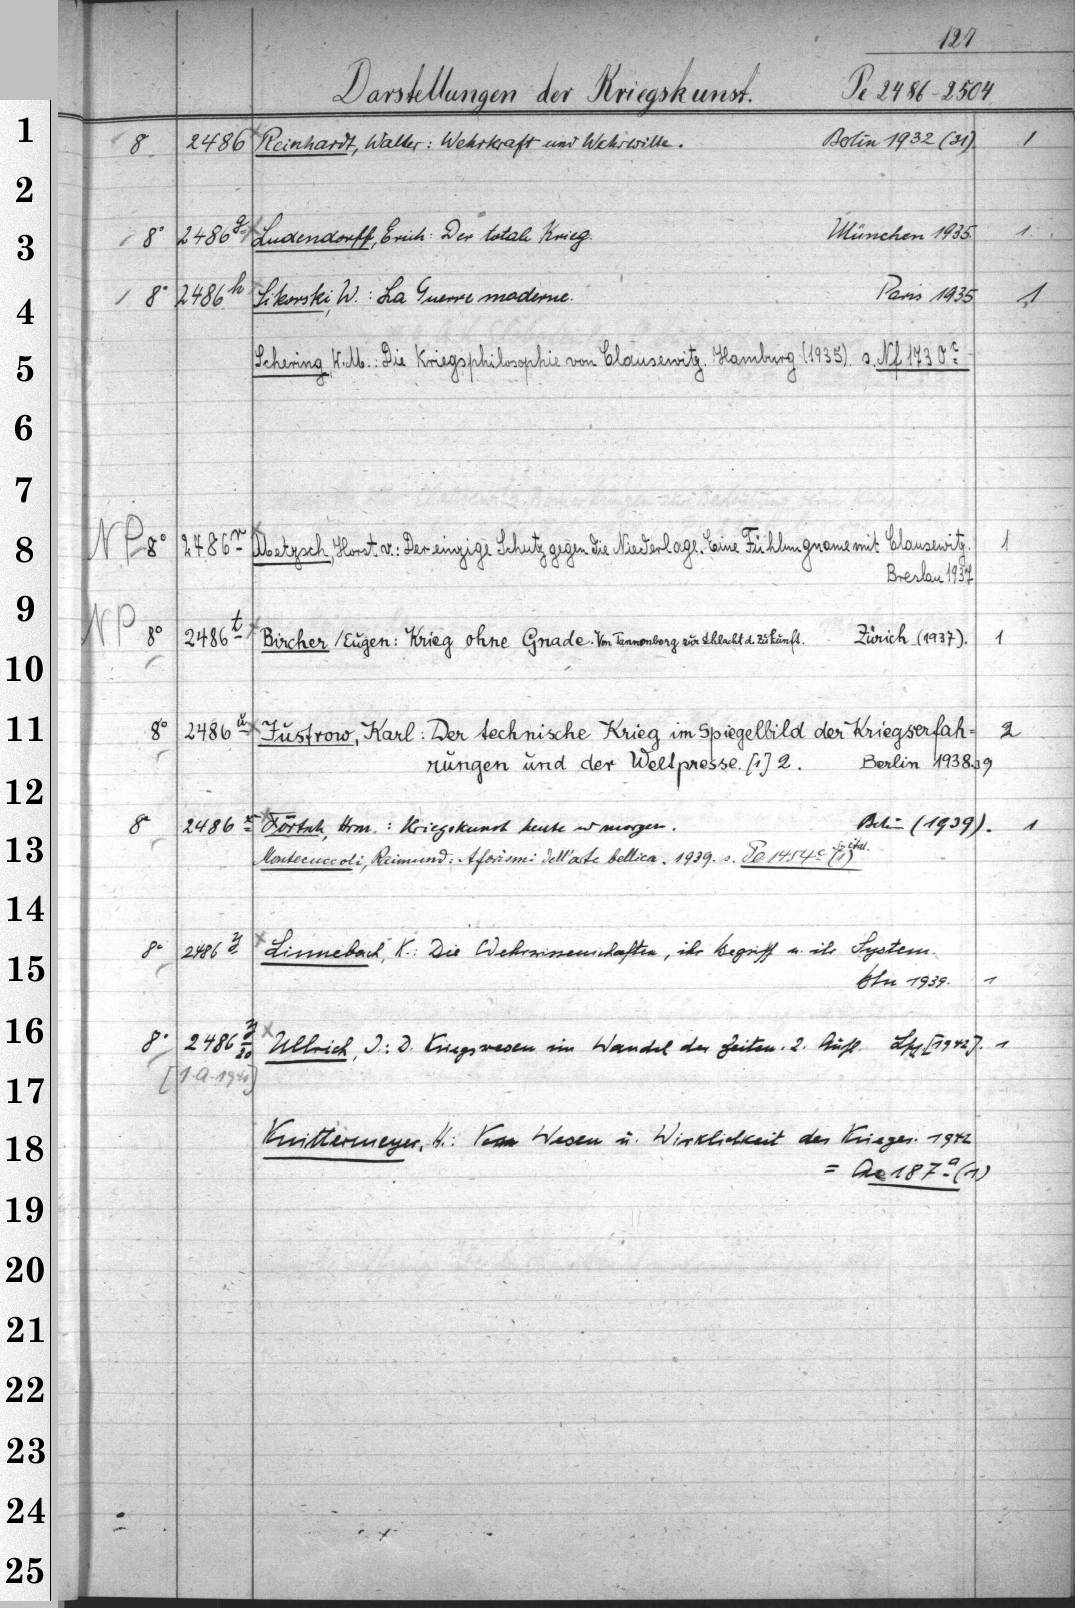 127
Darstellungen der Kriegskunst. Pe 2486-2504
1 8 2486 Reinhardt, Walter: Wehrkraft und Wehrwille. Berlin 1932 (31) 1
2
3 8° 2486 g Ludendorff, Erich: Der totale Krieg. München 1935 1
4 8° 2486 h Sikorski, W.: La Guerre moderne. Paris 1935 1
5 Schering, W.M.: Die Kriegsphilosophie von Clausewitz. Hamburg (1935). s. Nf 1730 c
6
7
8 NP 8° 2486 r Metzsch, Horst v.: Der einzige Schutz gegen die Niederlage. Eine Fühlungname mit Clausewitz. 1
Breslau 1937
9 NP 8° 2486 t Bircher, Eugen: Krieg ohne Gnade. Von Tannenberg zur Schlacht d. Zukunft. Zürich (1937). 1
10
11 8° 2486 u Justrow, Karl: Der technische Krieg im Spiegelbild der Kriegserfah= 2
rungen und der Weltpresse. [1] 2. Berlin 1938.39
12
8° 2486 x Förtsch, Hrm.: Kriegskunst heute u morgen. Berlin (1939). 1
13 Montecuccoli, Raimund: Aforismi dell'arte bellica. 1939. s. Pe 1454 c (1)
14
8° 2486 y Linnebach, K.: Die Wehrwissenschaften, ihr Begriff u. ihr System.
15 Bln 1939. 1
16 8° 2486 y/20 Ullrich, J.: D. Kriegswesen im Wandel der Zeiten. 2. Aufl. Lpz [1942]. 1
[1.A. 1940]
17
18 Knittermeyer, H.: Vom Wesen u. Wirklichkeit des Krieges. 1942
= Ae 187 a (1)
19
20
21
22
23
24
25